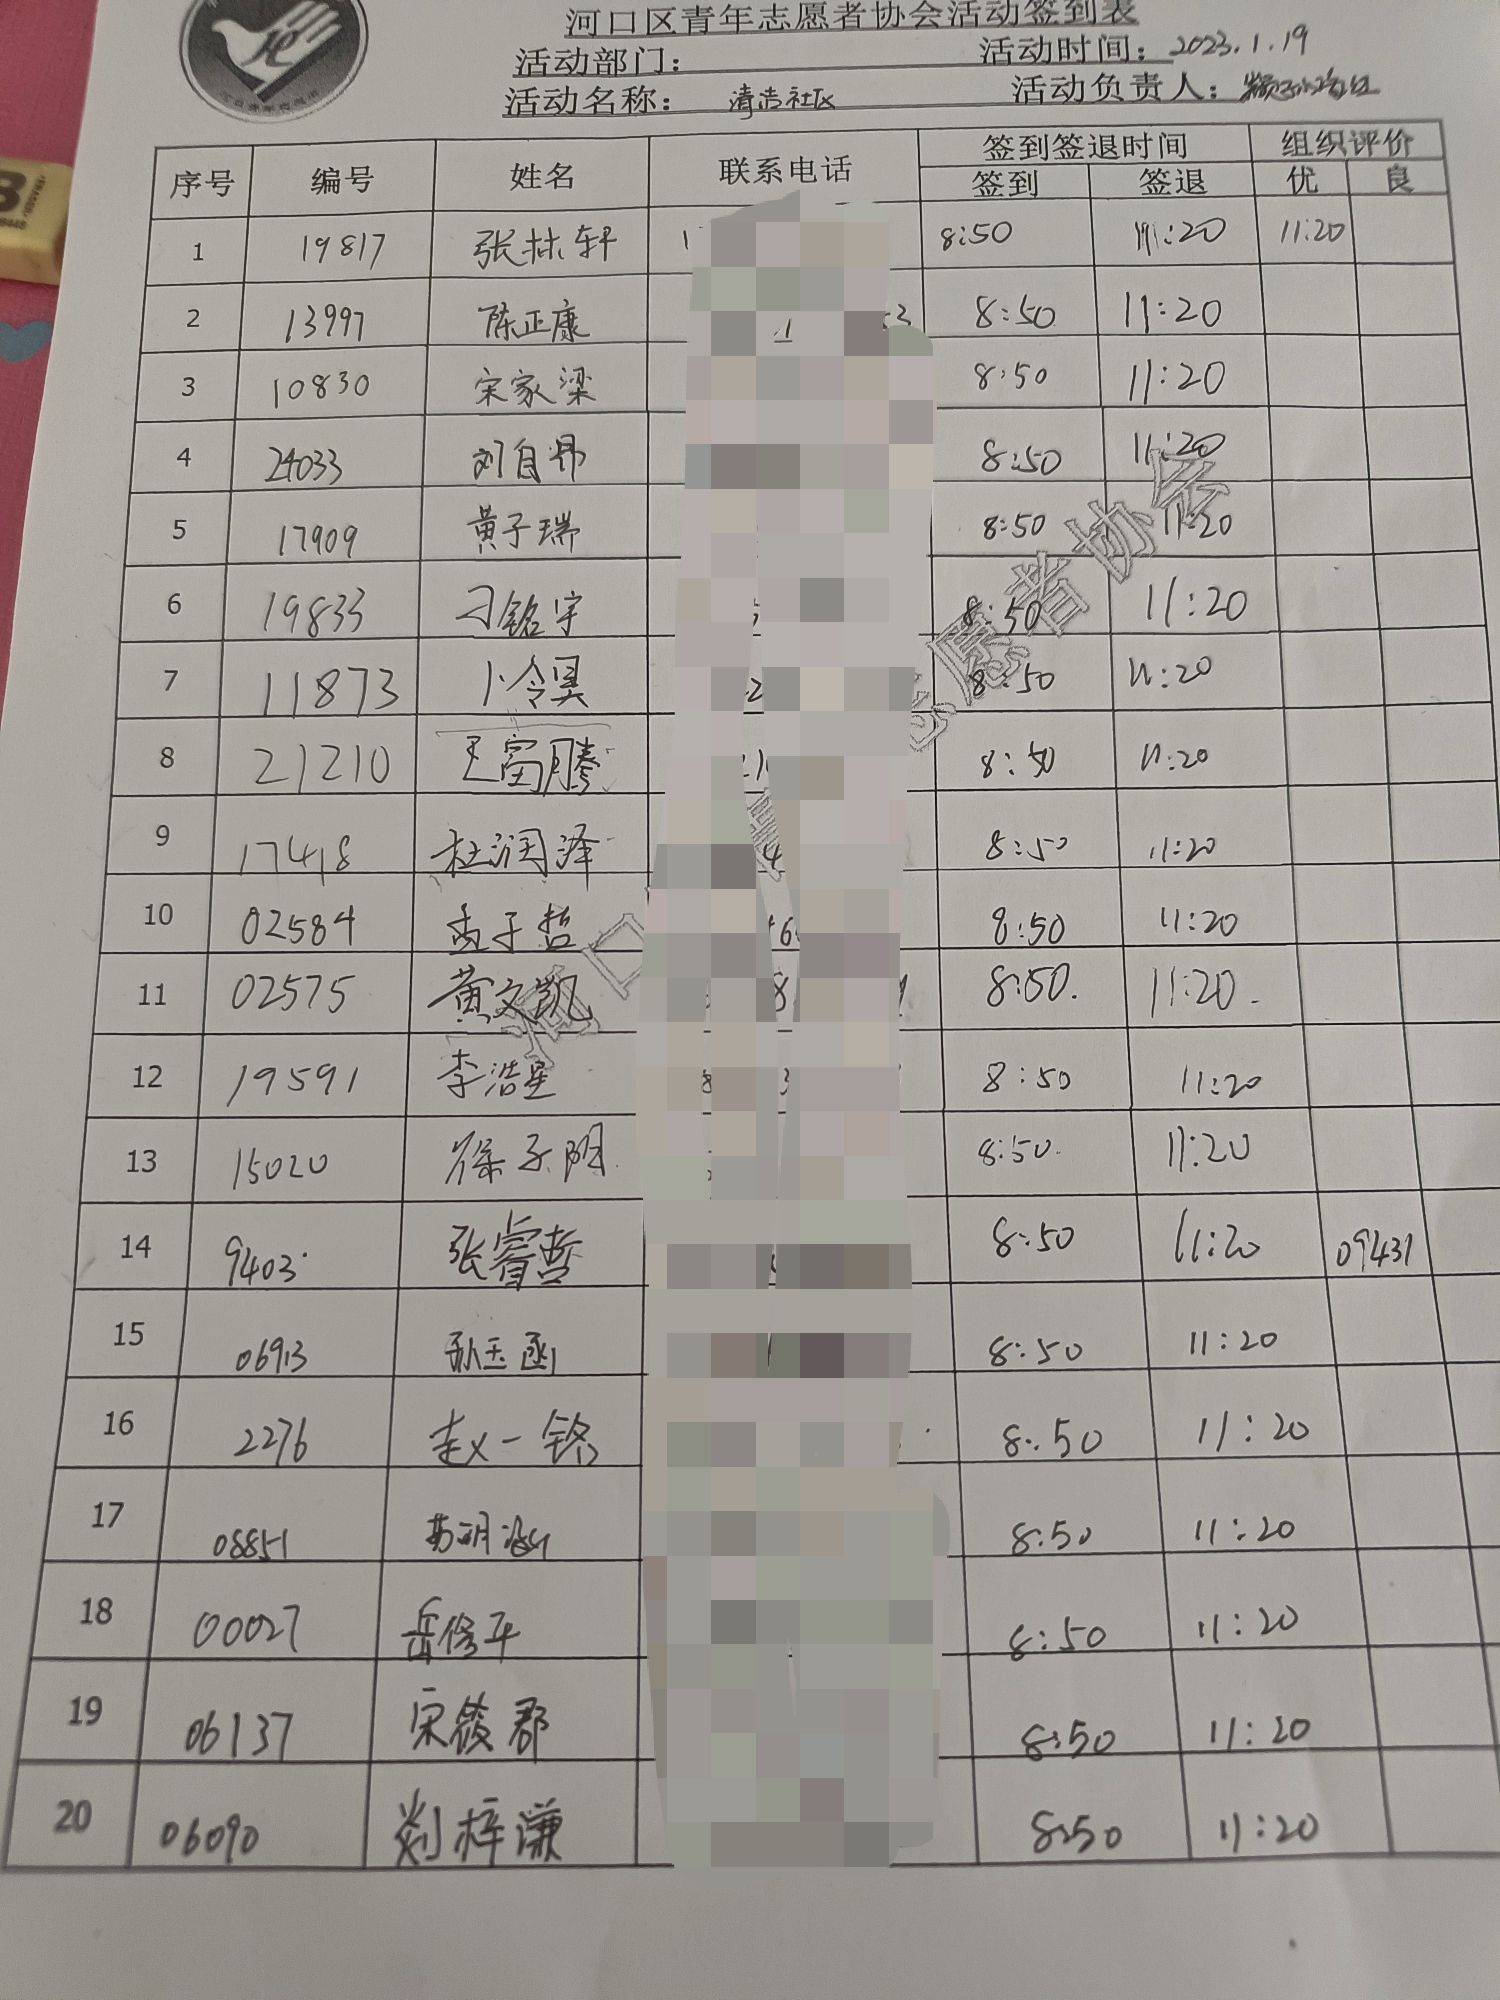 河口区青年志愿者协会活动签到表
活动部门： 活动时间：2023.1.19
活动名称： 清 社区 活动负责人：
序号 编号 姓名 联系电话 签到签退时间 组织评价
签到 签退 优 良
1 19817 张林轩 8:50 11:20 11:20
2 13997 陈正康 8:50 11:20
3 10830 宋家梁 8:50 11:20
4 24033 刘自 8:50 11:20
5 17909 黄子瑞 8:50 11:20
6 19833 刁铭宇 8:50 11:20
7 11873 8:50 11:20
8 21210 王富腾 8:50 11:20
9 17418 杜润泽 8:50 11:20
10 02584 孟子哲 8:50 11:20
11 02575 黄文凯 8:50. 11:20.
12 19591 李浩星 8:50 11:20
13 15020 徐子明 8:50. 11:20
14 9403 张睿哲 8:50 11:20 09431
15 06913 孙玉函 8:50 11:20
16 2276 赵一铭 8:50 11:20
17 08851 8:50 11:20
18 00027 岳修平 8:50 11:20
19 06137 宋筱郡 8:50 11:20
20 06090 刘梓谦 8:50 11:20
河口 志愿者协会